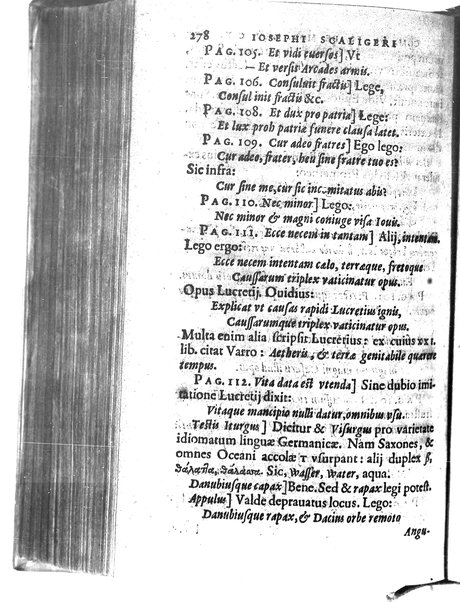 278 IOSEPHI SCALIGERI
PAG. 105. Et vidi euersos] Vt
— Et versit Arcades armis.
PAG. 106. Consuluit fractu] Lege,
Consul init fractu &c.
PAG. 108. Et dux pro patria] Lege:
Et lux proh patriæ funere clausa latet.
PAG. 109. Cur adeo fratres] Ego lego:
Cur adeo, frater, heu sine fratre tuo es?
Sic infra:
Cur sine me, cur sic incomitatus abis?
PAG. 110. Nec minor] Lego:
Nec minor & magni coniuge visa Iouis.
PAG. 111. Ecce necem in tantam] Alij, intentam.
Lego ergo:
Ecce necem intentam cælo, terræque, fretoque
Caussarum triplex vaticinatur opus.
Opus Lucretij. Ouidius:
Explicat vt causas rapidi Lucretius ignis,
Caussarumque triplex vaticinatur opus.
Multa enim alia scripsit Lucretius: ex cuius XXI.
lib. citat Varro: Aetheris, & terræ genitabile quærere
tempus.
PAG. 112. Vita data est vtenda] Sine dubio imi-
tatione Lucretij dixit:
Vitaque mancipio nulli datur, omnibus vsu.
Testis Iturgus] Dicitur & Visurgus pro varietate
idiomatum linguæ Germanicæ. Nam Saxones, &
omnes Oceani accolæ T vsurpant: alij duplex β,
θάλαττα, θάλασσα. Sic, Wasser, Water, aqua.
Danubiusque capax] Bene. Sed & rapax legi potest.
Appulus] Valde deprauatus locus. Lego:
Danubiusque rapax, & Dacius orbe remoto
Angu-